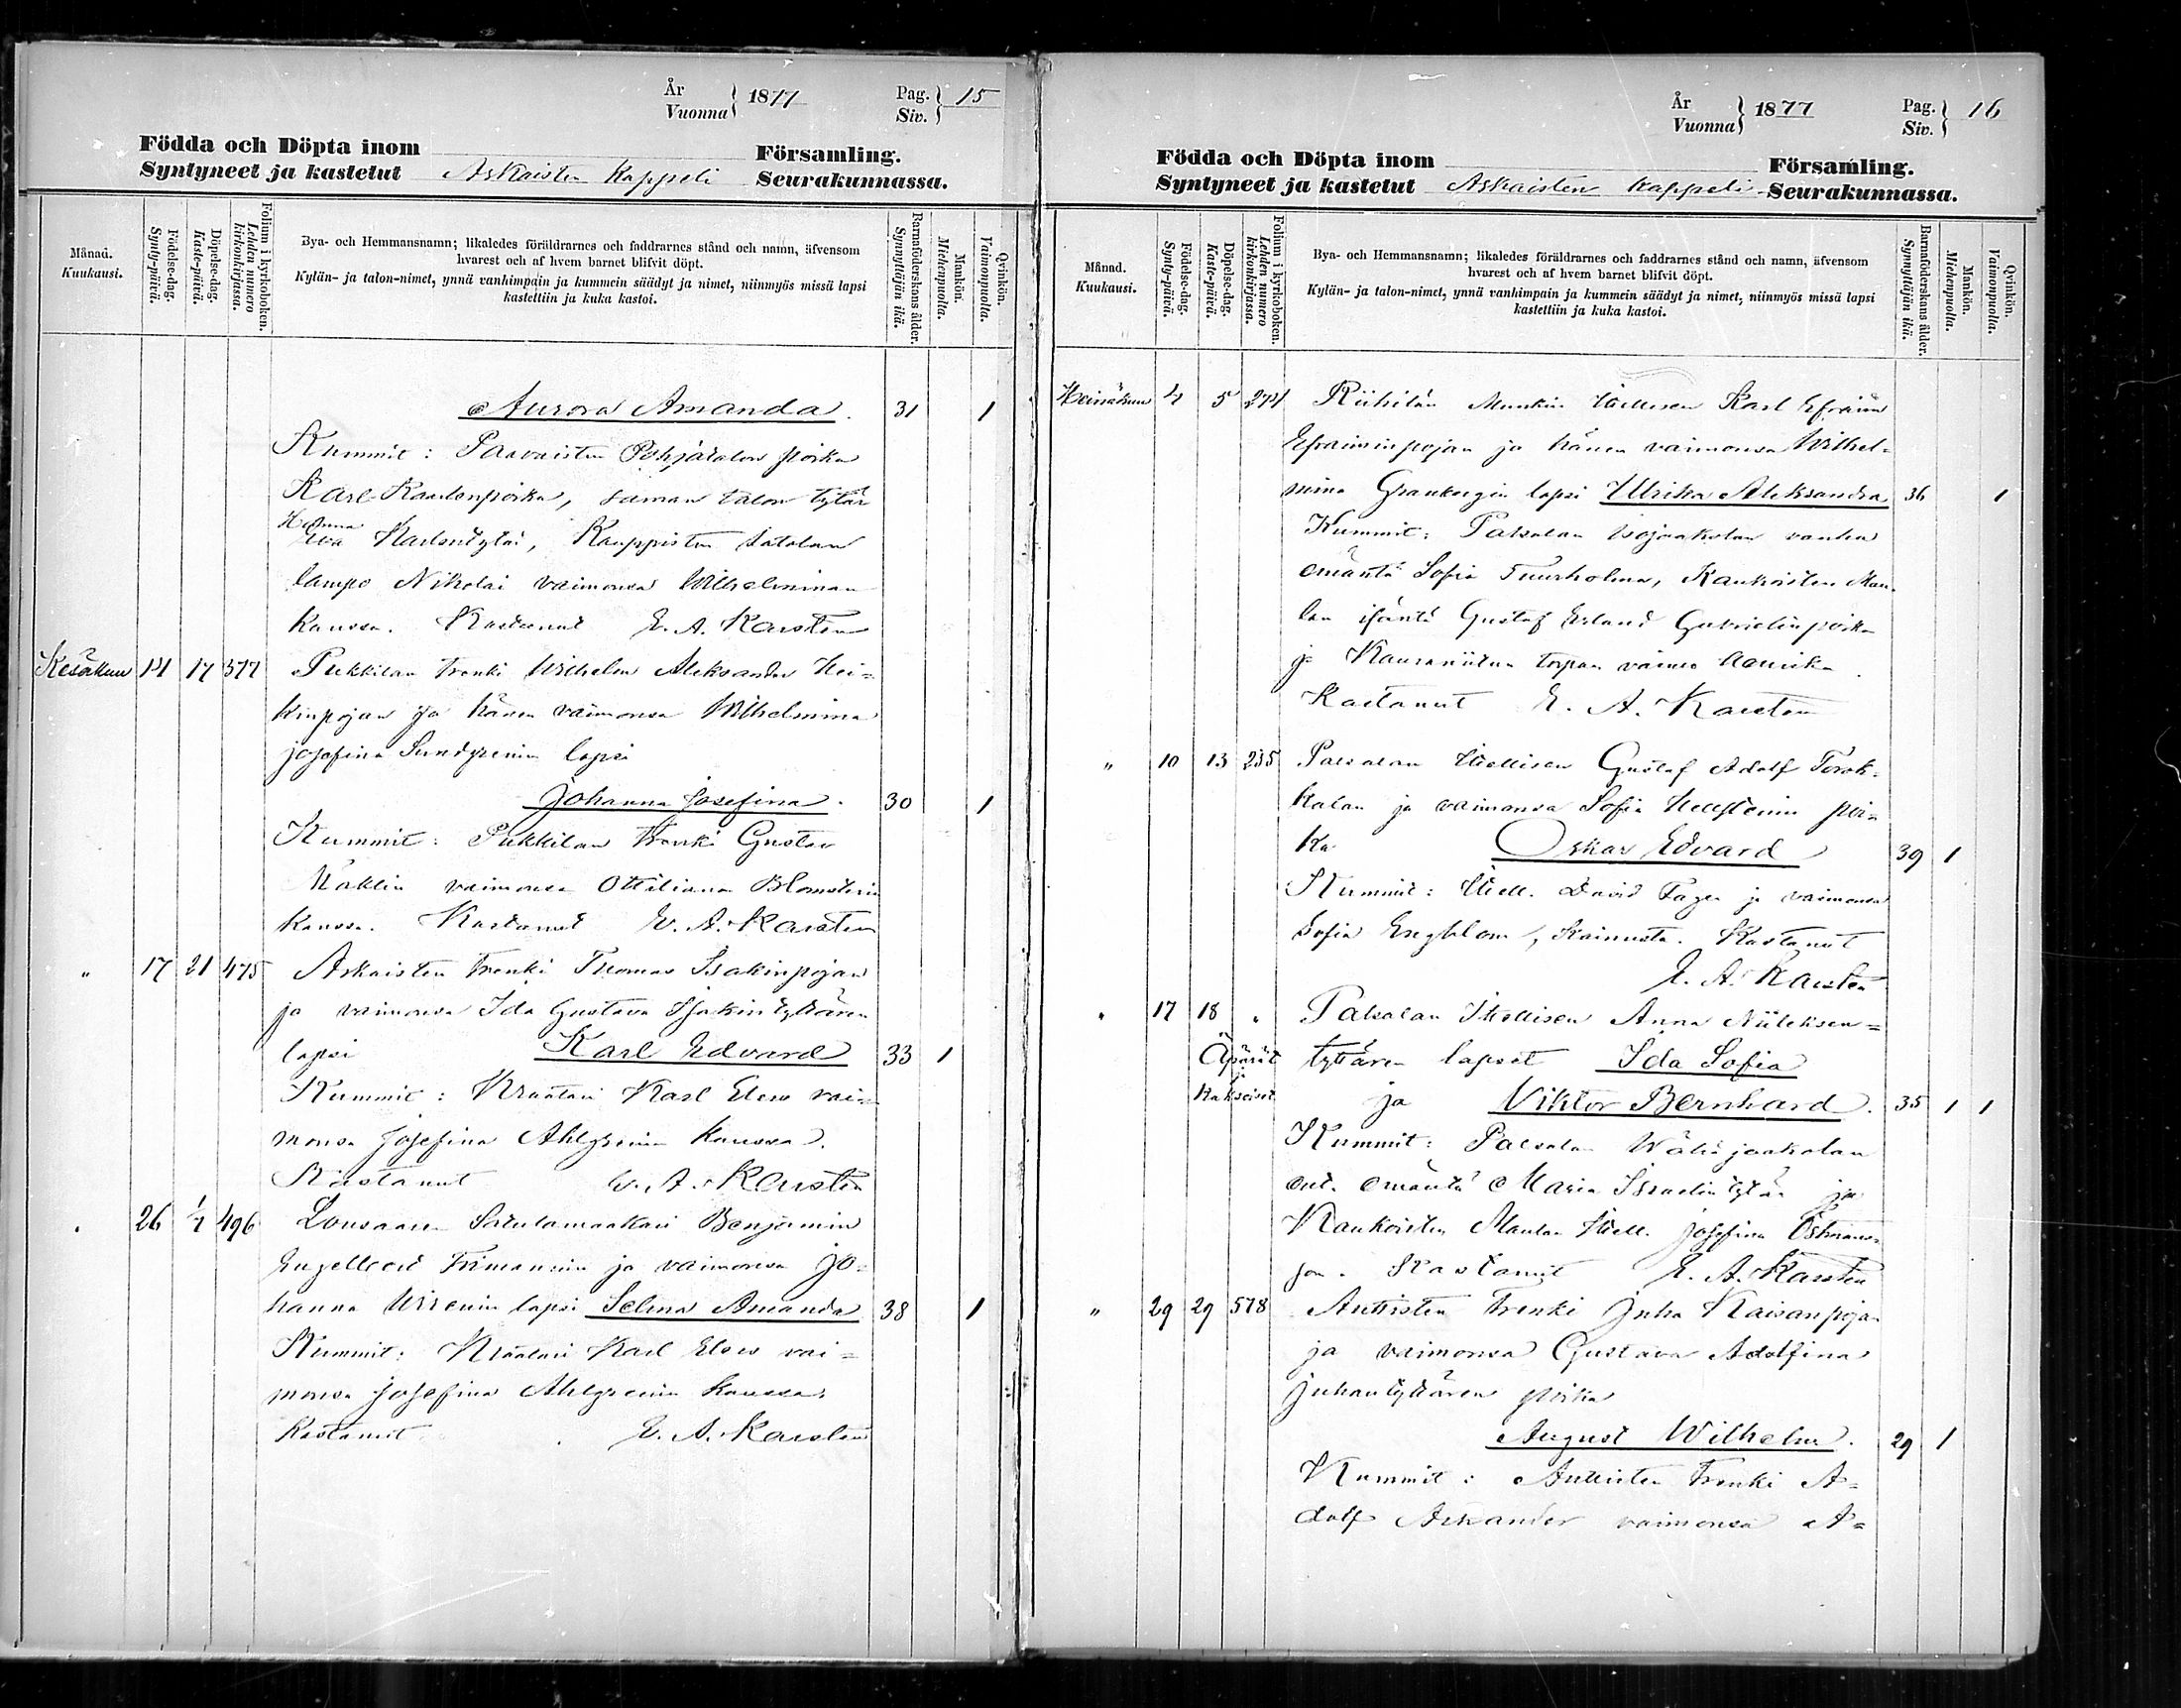 År
Vuonna } 1877
Pag.
Siv. } 15
Födda och Döpta inom Församling.
Syntyneet ja kastetut Askaisten Kappeli Seurakunnassa.
Månad.
Kuukausi.
Födelse-dag.
Synty-päivä.
Döpelse-dag.
Kaste-päivä.
Folium i kyrkoboken.
Lehden numero
kirkonkirjassa.
Bya- och Hemmansnamn; likaledes föräldrarnes och faddrarnes stånd och namn, äfvensom
hvarest och af hvem barnet blifvit döpt.
Kylän- ja talon-nimet, ynnä vanhimpain ja kummein säädyt ja nimet, niinmyös missä lapsi
kastettiin ja kuka kastoi.
Barnaföderskans ålder.
Synnyttäjän ikä.
Mankön.
Miehenpuolia.
Qvinkön.
Vaimonpuolia.
Aurora Amanda. 31 1
Kummit: Paavaisten Pohjatalon poika
Karl Kaarlenpoika, saman talon tytär
Hanna
Eva Karlentytär, Kauppisten
lampo Nikolai vaimonsa Wilhelminan
kanssa. Kastanut E. A. Karstén
Kesäkuu 14 17 377 Pukkilan trenki Wilhelm Aleksander Hei-
kinpojan ja hänen vaimonsa Wilhelmina
Josefina Sundgrenin lapsi
Johanna Josefina. 30 1
Kummit: Pukkilan trenki Gustav
Maklin vaimonsa Ottiliana Blomsterin
kanssa. Kastanut E. A. Karstén
" 17 21 475 Askaisten trenki Thomas Isakinpojan
ja vaimonsa Ida Gustava Isakintyttären
lapsi Karl Edvard 33 1
Kummit: Kraatari Karl Elers vai-
monsa Josefina Ahlgrenin kanssa.
Kastanut E. A. Karstén
" 26 1/7 496 Lousaaren Satulamaakari Benjamin
Engelbert Frimannin ja vaimonsa Jo-
hanna lapsi Selma Amanda 38 1
Kummit: Kraatari Karl Elers vai-
monsa Josefina Ahlgrenin kanssa.
Kastanut E. A. Karstén
År
Vuonna } 1877
Pag.
Siv. } 16
Födda och Döpta inom Församling.
Syntyneet ja kastetut Askaisten kappeli Seurakunnassa.
Månad.
Kuukausi.
Födelse-dag.
Synty-päivä.
Döpelse-dag.
Kaste-päivä.
Folium i kyrkoboken.
Lehden numero
kirkonkirjassa.
Bya- och Hemmansnamn; likaledes föräldrarnes och faddrarnes stånd och namn, äfvensom
hvarest och af hvem barnet blifvit döpt.
Kylän- ja talon-nimet, ynnä vanhimpain ja kummein säädyt ja nimet, niinmyös missä lapsi
kastettiin ja kuka kastoi.
Barnaföderskans ålder.
Synnyttäjän ikä.
Mankön.
Miehenpuolia.
Qvinkön.
Vaimonpuolia.
Heinäkuu 4 5 274 Riihilän Munkin itsellisen Karl Efraim
Efraiminpojan ja hänen vaimonsa Wilhel-
mina Grankvgin lapsi Ulrika Aleksandra 36 1
Kummit: Palsalan Isojaakolan vanha
emäntä Sofia Tuurholma, Kankoisten Man-
lan isäntä Gustaf Erland Gabrielinpoika
ja Kauraniitun torpan vaimo
Kastanut E. A. Karstén
" 10 13 235 Palsalan itsellisen Gustaf Adolf Torok-
kalan ja vaimonsa Sofia poi-
ka Oskar Edvard 39 1
Kummit: itsell. David Fager ja vaimonsa
Sofia Engblom, Kainusta. Kastanut
E. A. Karstén
" 17 18 " Palsalan itsellisen Anna
Äpärät tyttären lapset Ida Sofia
ja
kaksoiset ja Viktor Bernhard. 35 1 1
Kummit: Palsalan Wähäjaakolan
ent. emäntä Maria Israelintytär ja
Kankoisten Manlan itsell. Josefina Östmans-
son. Kastanut E. A. Karstén
" 29 29 578 Anttisten trenki Juha Kaisanpojan
ja vaimonsa Gustava Adolfina
Juhantyttären poika
August Wilhelm. 29 1
Kummit: Anttisten trenki A-
dolf Askander vaimonsa A-